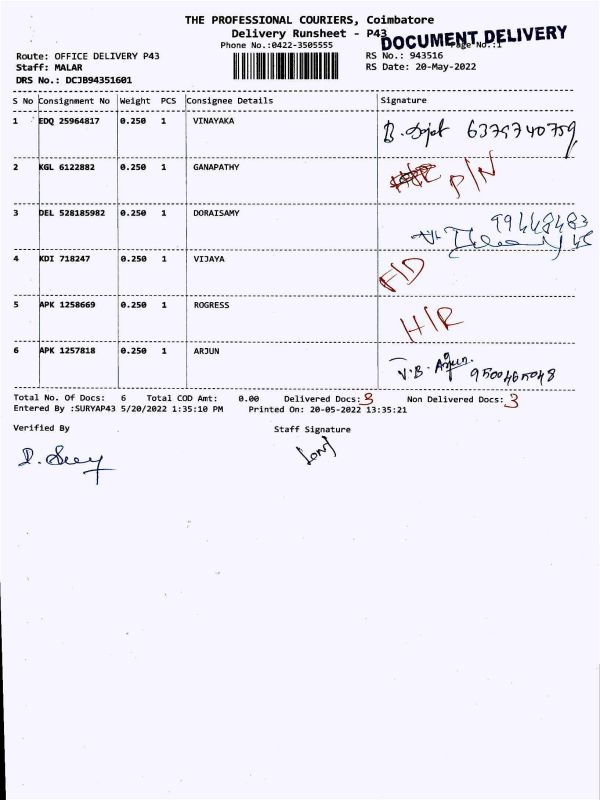 THE PROFESSIONAL COURIERS, Coimbatore
Delivery Runsheet - P43
DOCUMENT DELIVERY
Phone No.:0422-3505555
Page No.:1
Route: OFFICE DELIVERY P43
RS No.: 943516
Staff: MALAR
RS Date: 20-May-2022
DRS No.: DCJB94351601
S No Consignment No Weight PCS Consignee Details Signature
1 EDQ 25964817 0.250 1 VINAYAKA B. 6379740759
2 KGL 6122882 0.250 1 GANAPATHY P/N
3 DEL 528185982 0.250 1 DORAISAMY 99448483
45
4 KDI 718247 0.250 1 VIJAYA F/D
5 APK 1258669 0.250 1 ROGRESS H/R
6 APK 1257818 0.250 1 ARJUN V.B. Arjun. 9500465048
Total No. Of Docs: 6 Total COD Amt: 0.00 Delivered Docs: 3 Non Delivered Docs: 3
Entered By :SURYAP43 5/20/2022 1:35:10 PM Printed On: 20-05-2022 13:35:21
Verified By Staff Signature